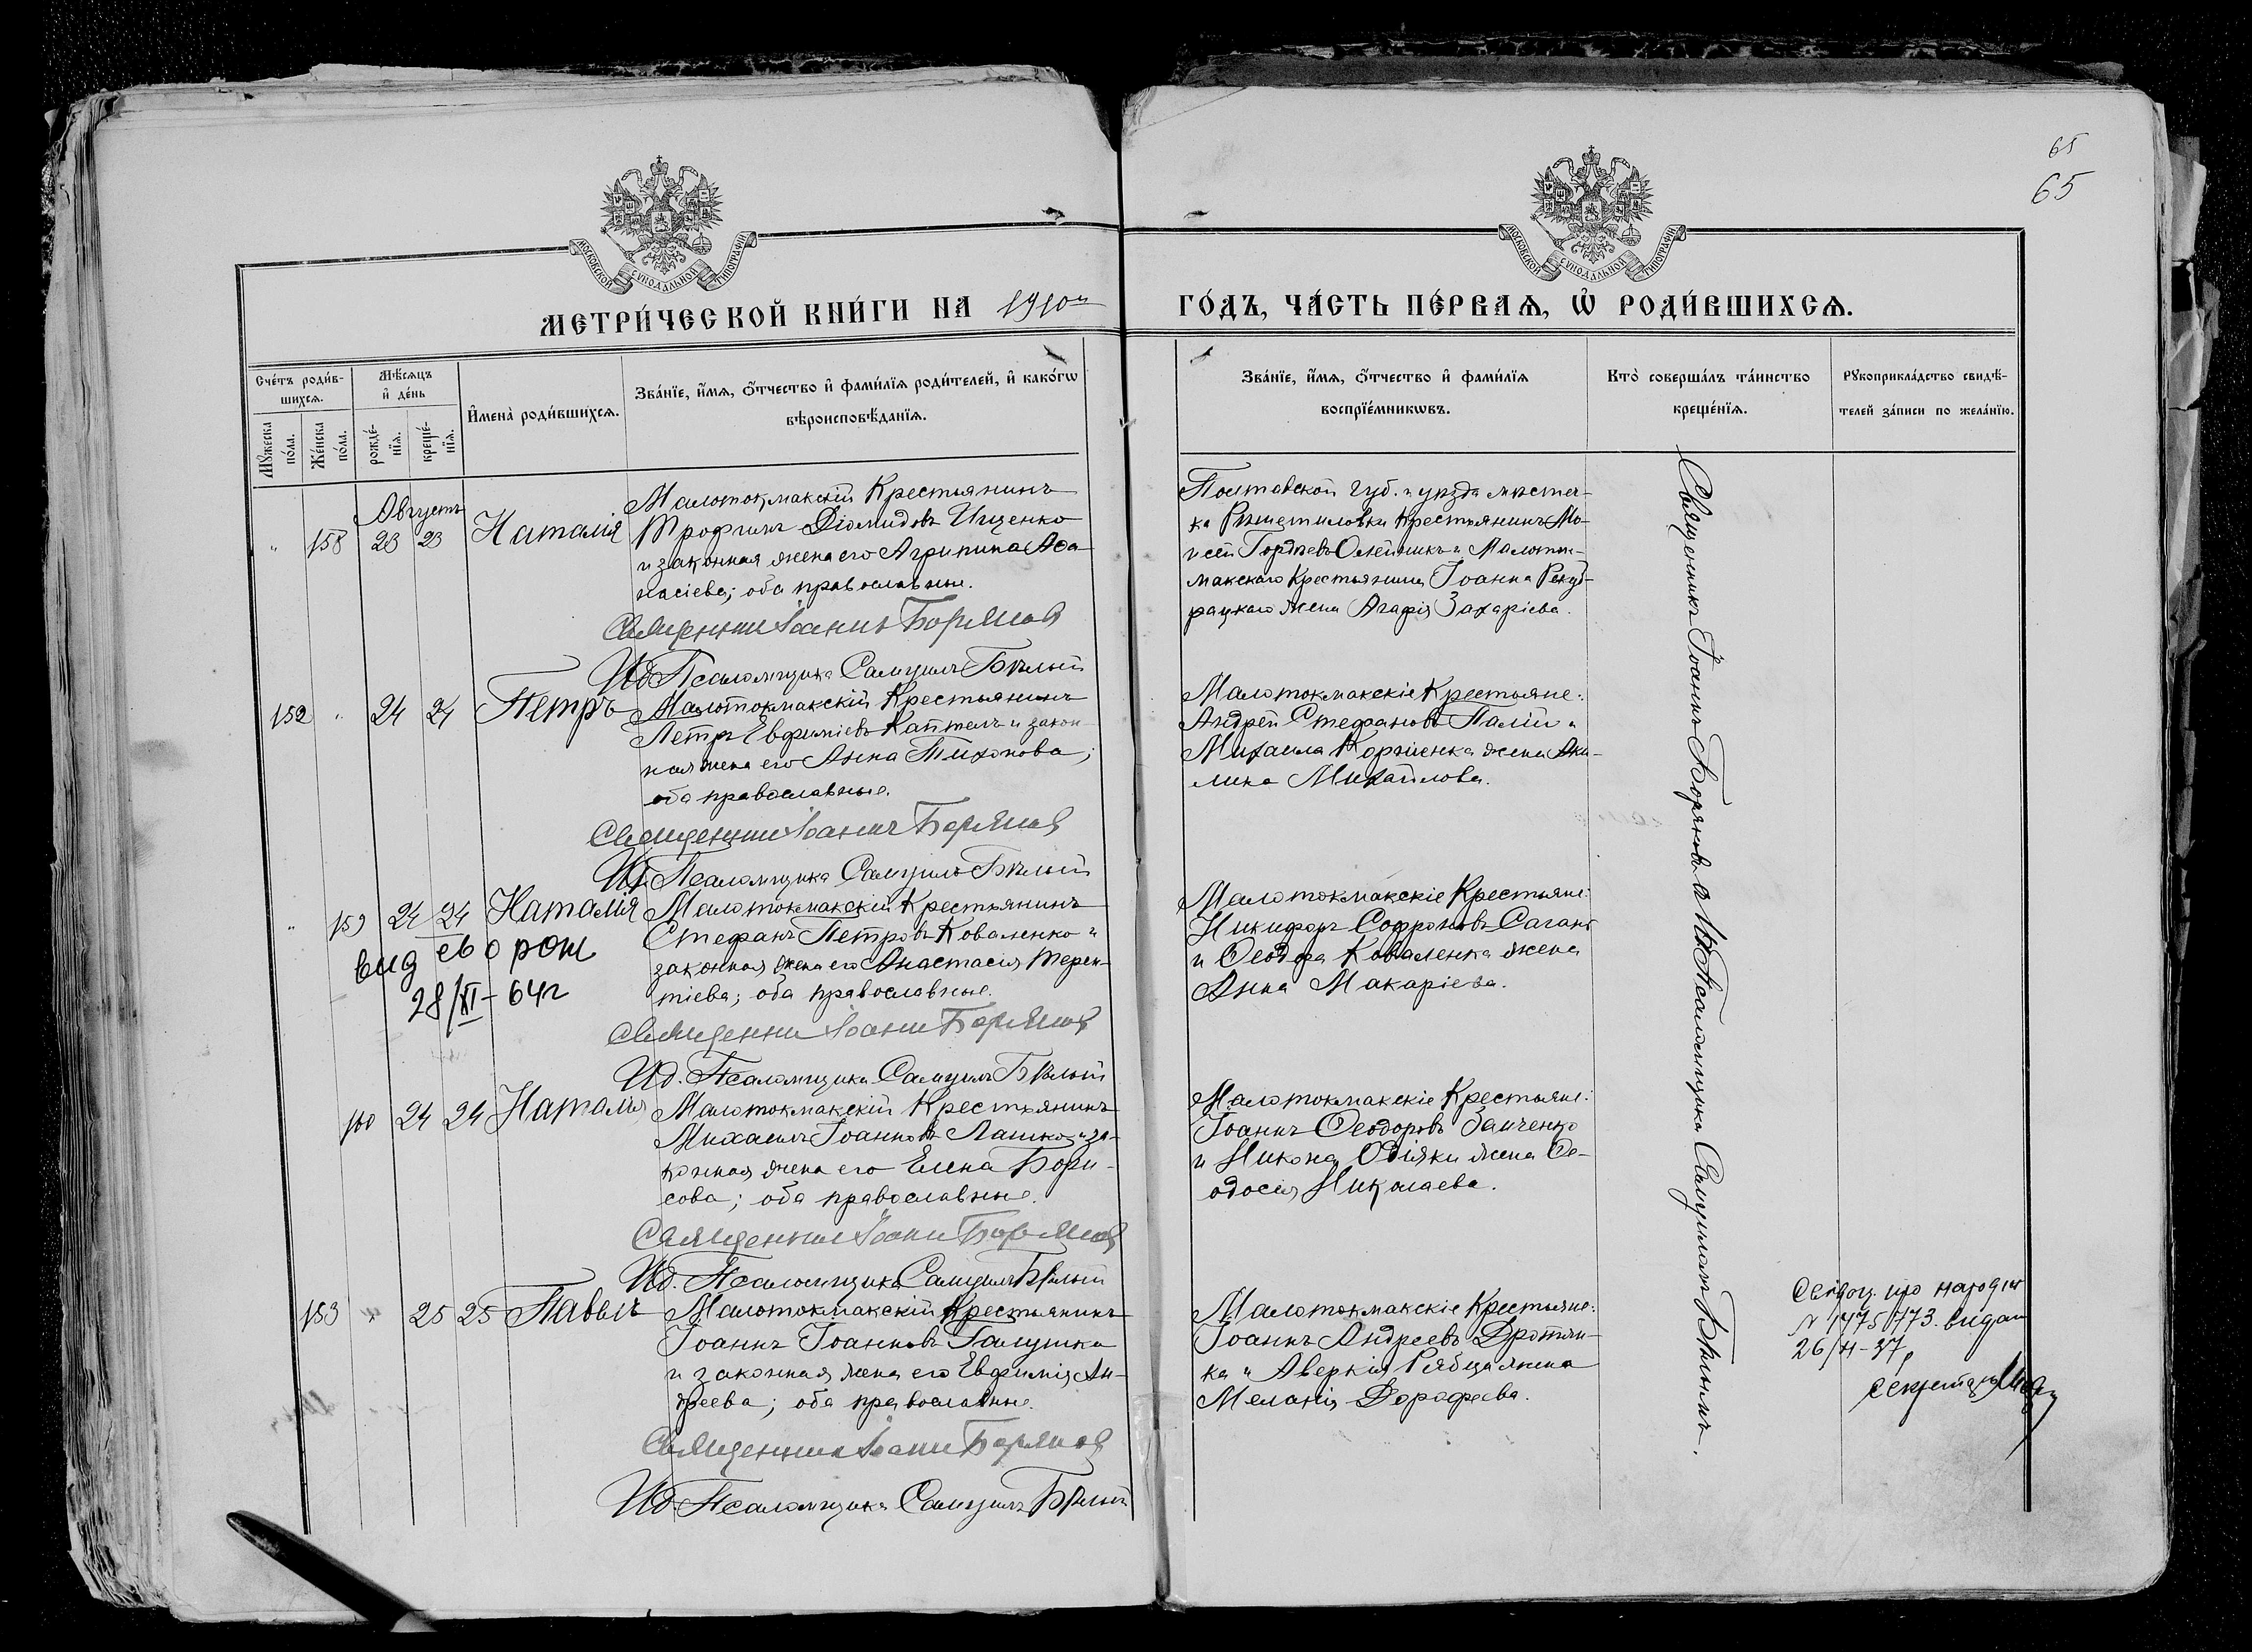 65
65
МОСКОВСКОЙ СѴНОДАЛЬНОЙ ТИПОГРАФІИ
МОСКОВСКОЙ СѴНОДАЛЬНОЙ ТИПОГРАФІИ
МЕТРИ́ЧЕСКОЙ КНИ́ГИ НА 1910й ГО́ДЪ, ЧА́СТЬ ПЕ́РВАѦ, Ѡ҆ РОДИ́ВШИХСѦ.
Сче́тъ роди́в-
шихсѧ.
Мꙋ́жеска по́ла.
Же́нска по́ла.
Мѣ́сѧцъ и҆ де́нь
рожде́-
нїѧ.
креще́-
нїѧ.
И҆мена̀ роди́вшихсѧ.
Зва́нїе, и҆́мѧ, ѻ҆́тчество и҆ фами́лїѧ роди́телей, и҆ како́гѡ
вѣроисповѣ́данїѧ.
Зва́нїе, и҆́мѧ, ѻ҆́тчество и҆ фами́лїѧ
воспрїе́мникѡвъ.
Кто̀ соверша́лъ та́инство
креще́нїѧ.
Рꙋкоприкла́дство свидѣ́-
телей за́писи по жела́нїю.
Августъ
" 158 23 23 Наталія
Малотокмакскій Крестьянинъ
Трофимъ Діомидовъ Ищенко
и законная жена его Агрипина Афа-
насіева; оба православные.
Священникъ Іоаннъ Боряковъ
Ид. Псаломщика Самуилъ Бѣлый
Полтавской губ. и уѣзда мѣстеч-
ка Рѣшетиловки Крестьянинъ Мо-
исей Гордѣевъ Олейникъ и Малоток-
макскаго Крестьянина Іоанна
жена Агафія Захаріева.
152 " 24 24 Петръ
Малотокмакскій Крестьянинъ
Петръ Евфиміевъ Каптелъ и закон-
ная жена его Анна Тихонова;
оба православные.
Священникъ Іоаннъ Боряковъ
Ид. Псаломщика Самуилъ Бѣлый
Малотокмакскіе Крестьяне:
Андрей Стефановъ Палій и
Михаила Корніенка жена Аки-
лина Михайлова.
" 159 24 24 Наталія
вид св о рож
28/XI - 64 г
Малотокмакскій Крестьянинъ
Стефанъ Петровъ Коваленко и
законная жена его Анастасія Терен-
тіева; оба православные.
Священникъ Іоаннъ Боряковъ
Ид. Псаломщика Самуилъ Бѣлый
Малотокмакскіе Крестьяне:
Никифоръ Софроновъ Саганъ
и Ѳеодора Коваленка жена
Анна Макаріева.
160 24 24 Наталія
Малотокмакскій Крестьянинъ
Михаилъ Іоанновъ Лашко и за-
конная жена его Елена Бори-
сова; оба православные.
Священникъ Іоаннъ Боряковъ
Ид. Псаломщика Самуилъ Бѣлый
Малотокмакскіе Крестьяне:
Іоаннъ Ѳеодоровъ Заиченко
и Никона жена Ѳе-
одосія Николаева.
153 " 25 25 Павелъ
Малотокмакскій Крестьянинъ
Іоаннъ Іоанновъ Галушка
и законная жена его Евфимія Ан-
дреева; оба православные.
Священникъ Іоаннъ Боряковъ
Ид. Псаломщика Самуилъ Бѣлый
Малотокмакскіе Крестьяне:
Іоаннъ Андреевъ Дротян-
ка и Аверкія Рябца жена
Меланія Дорофеева.
Священникъ Іоаннъ Боряковъ съ Ид. Псаломщика Самуиломъ Бѣлымъ.
Свідоц. про народж
N 1475773. видан
26/II - 37 р
секретарь